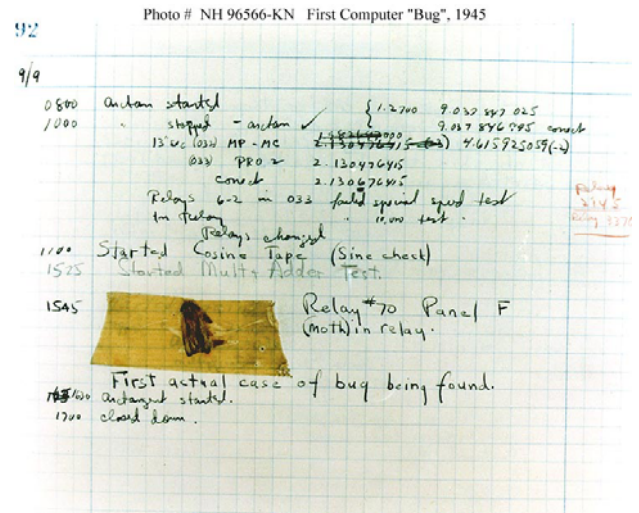 Photo # NH 96566-KN First Computer "Bug", 1945
92
9/9
0800 antan started
1000 " stopped - antan ✓ { 1.2700 9.037 847 025
9.037 846 995 conect
13"uc (032) MP - MC 2.130476415 (-3) 4.615925059(-2)
(033) PRO 2 2.130476415
conect 2.130676415
Relays 6-2 in 033 failed special speed test
in relay " 10.000 test .
Relays changed
1100 Started Cosine Tape (Sine check)
1525 Started Mult + Adder Test.
1545 Relay #70 Panel F
(moth) in relay.
First actual case of bug being found.
1630 antangent started.
1700 closed down.
Relay
2145
Relay 3370